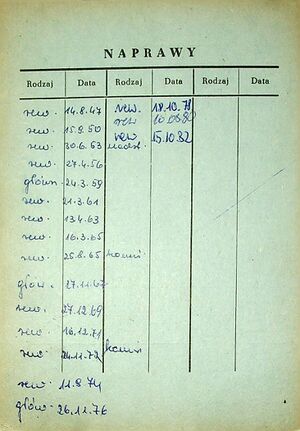 NAPRAWY
Rodzaj Data Rodzaj Data Rodzaj Data
rew. 14.8.47 rew. 18.10.71
rew. 15.9.50 rew 10.06.80
rew. 30.6.53 rew 15.10.82
rew. 27.4.56
główn. 24.3.59
rew. 21.3.61
rew. 13.4.63
rew. 16.3.65
rew. 25.8.65
główn. 27.11.67
rew. 27.12.69
rew. 16.12.71
rew. 24.11.72
rew. 11.8.74
główn. 26.11.76